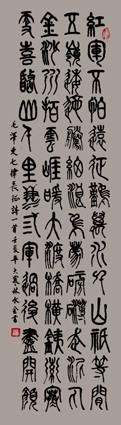 紅軍不怕遠征難萬水千山祇等閒
五嶺逶迤騰細浪烏蒙磅礴走泥丸
金沙水拍雲崖暖大渡橋橫鐵索寒
更喜岷山千里雪三軍過後盡開顏
毛澤東七律長征詩一首壬辰年